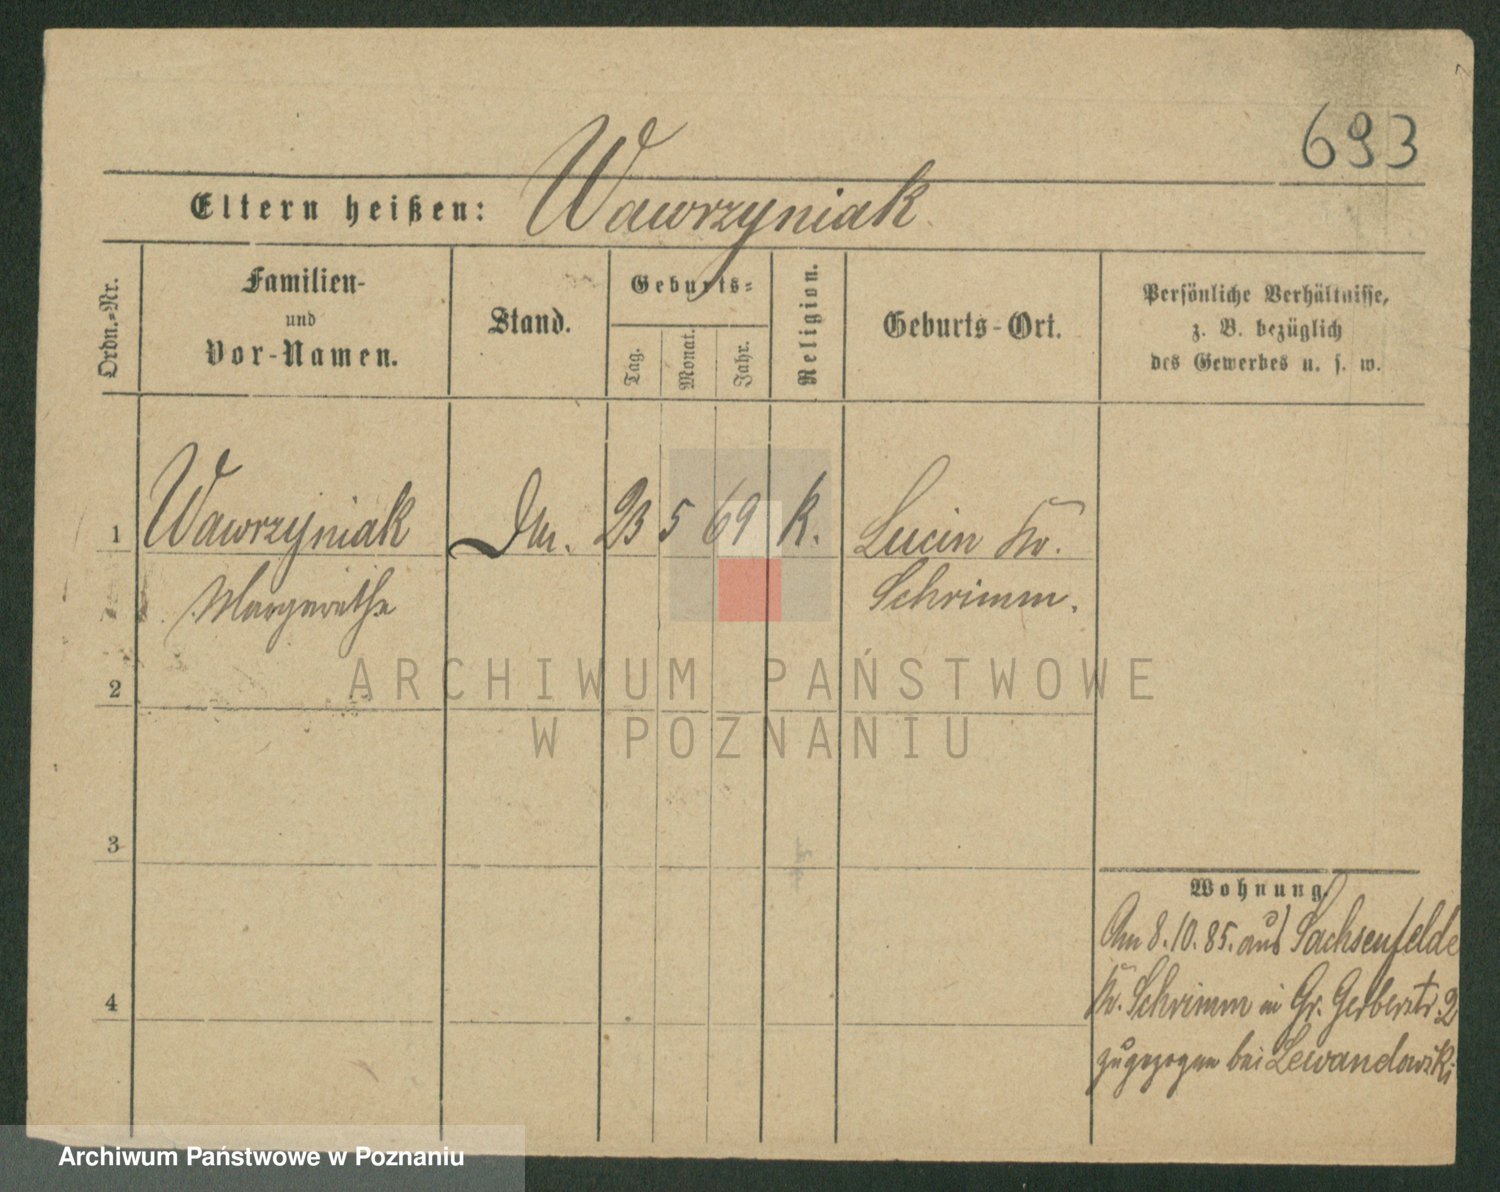 693
Eltern heißen: Wawrzyniak
Ordn.-Nr.
Familien-
und
Vor-Namen.
Stand.
Geburts-
Tag.
Monat.
Jahr.
Religion.
Geburts-Ort.
Persönliche Verhältnisse,
z. B. bezüglich
des Gewerbes u. s. w.
1 Wawrzyniak 23 5 69 k. Lucin Kr.
Margarethe Schrimm.
2
3
4
Wohnung.
Am 8.10.85. aus Sachsenfelde
Kr. Schrimm in Gr. Gerberstr. 2
zugezogen bei Lewandowski
ARCHIWUM PAŃSTWOWE
W POZNANIU
Archiwum Państwowe w Poznaniu